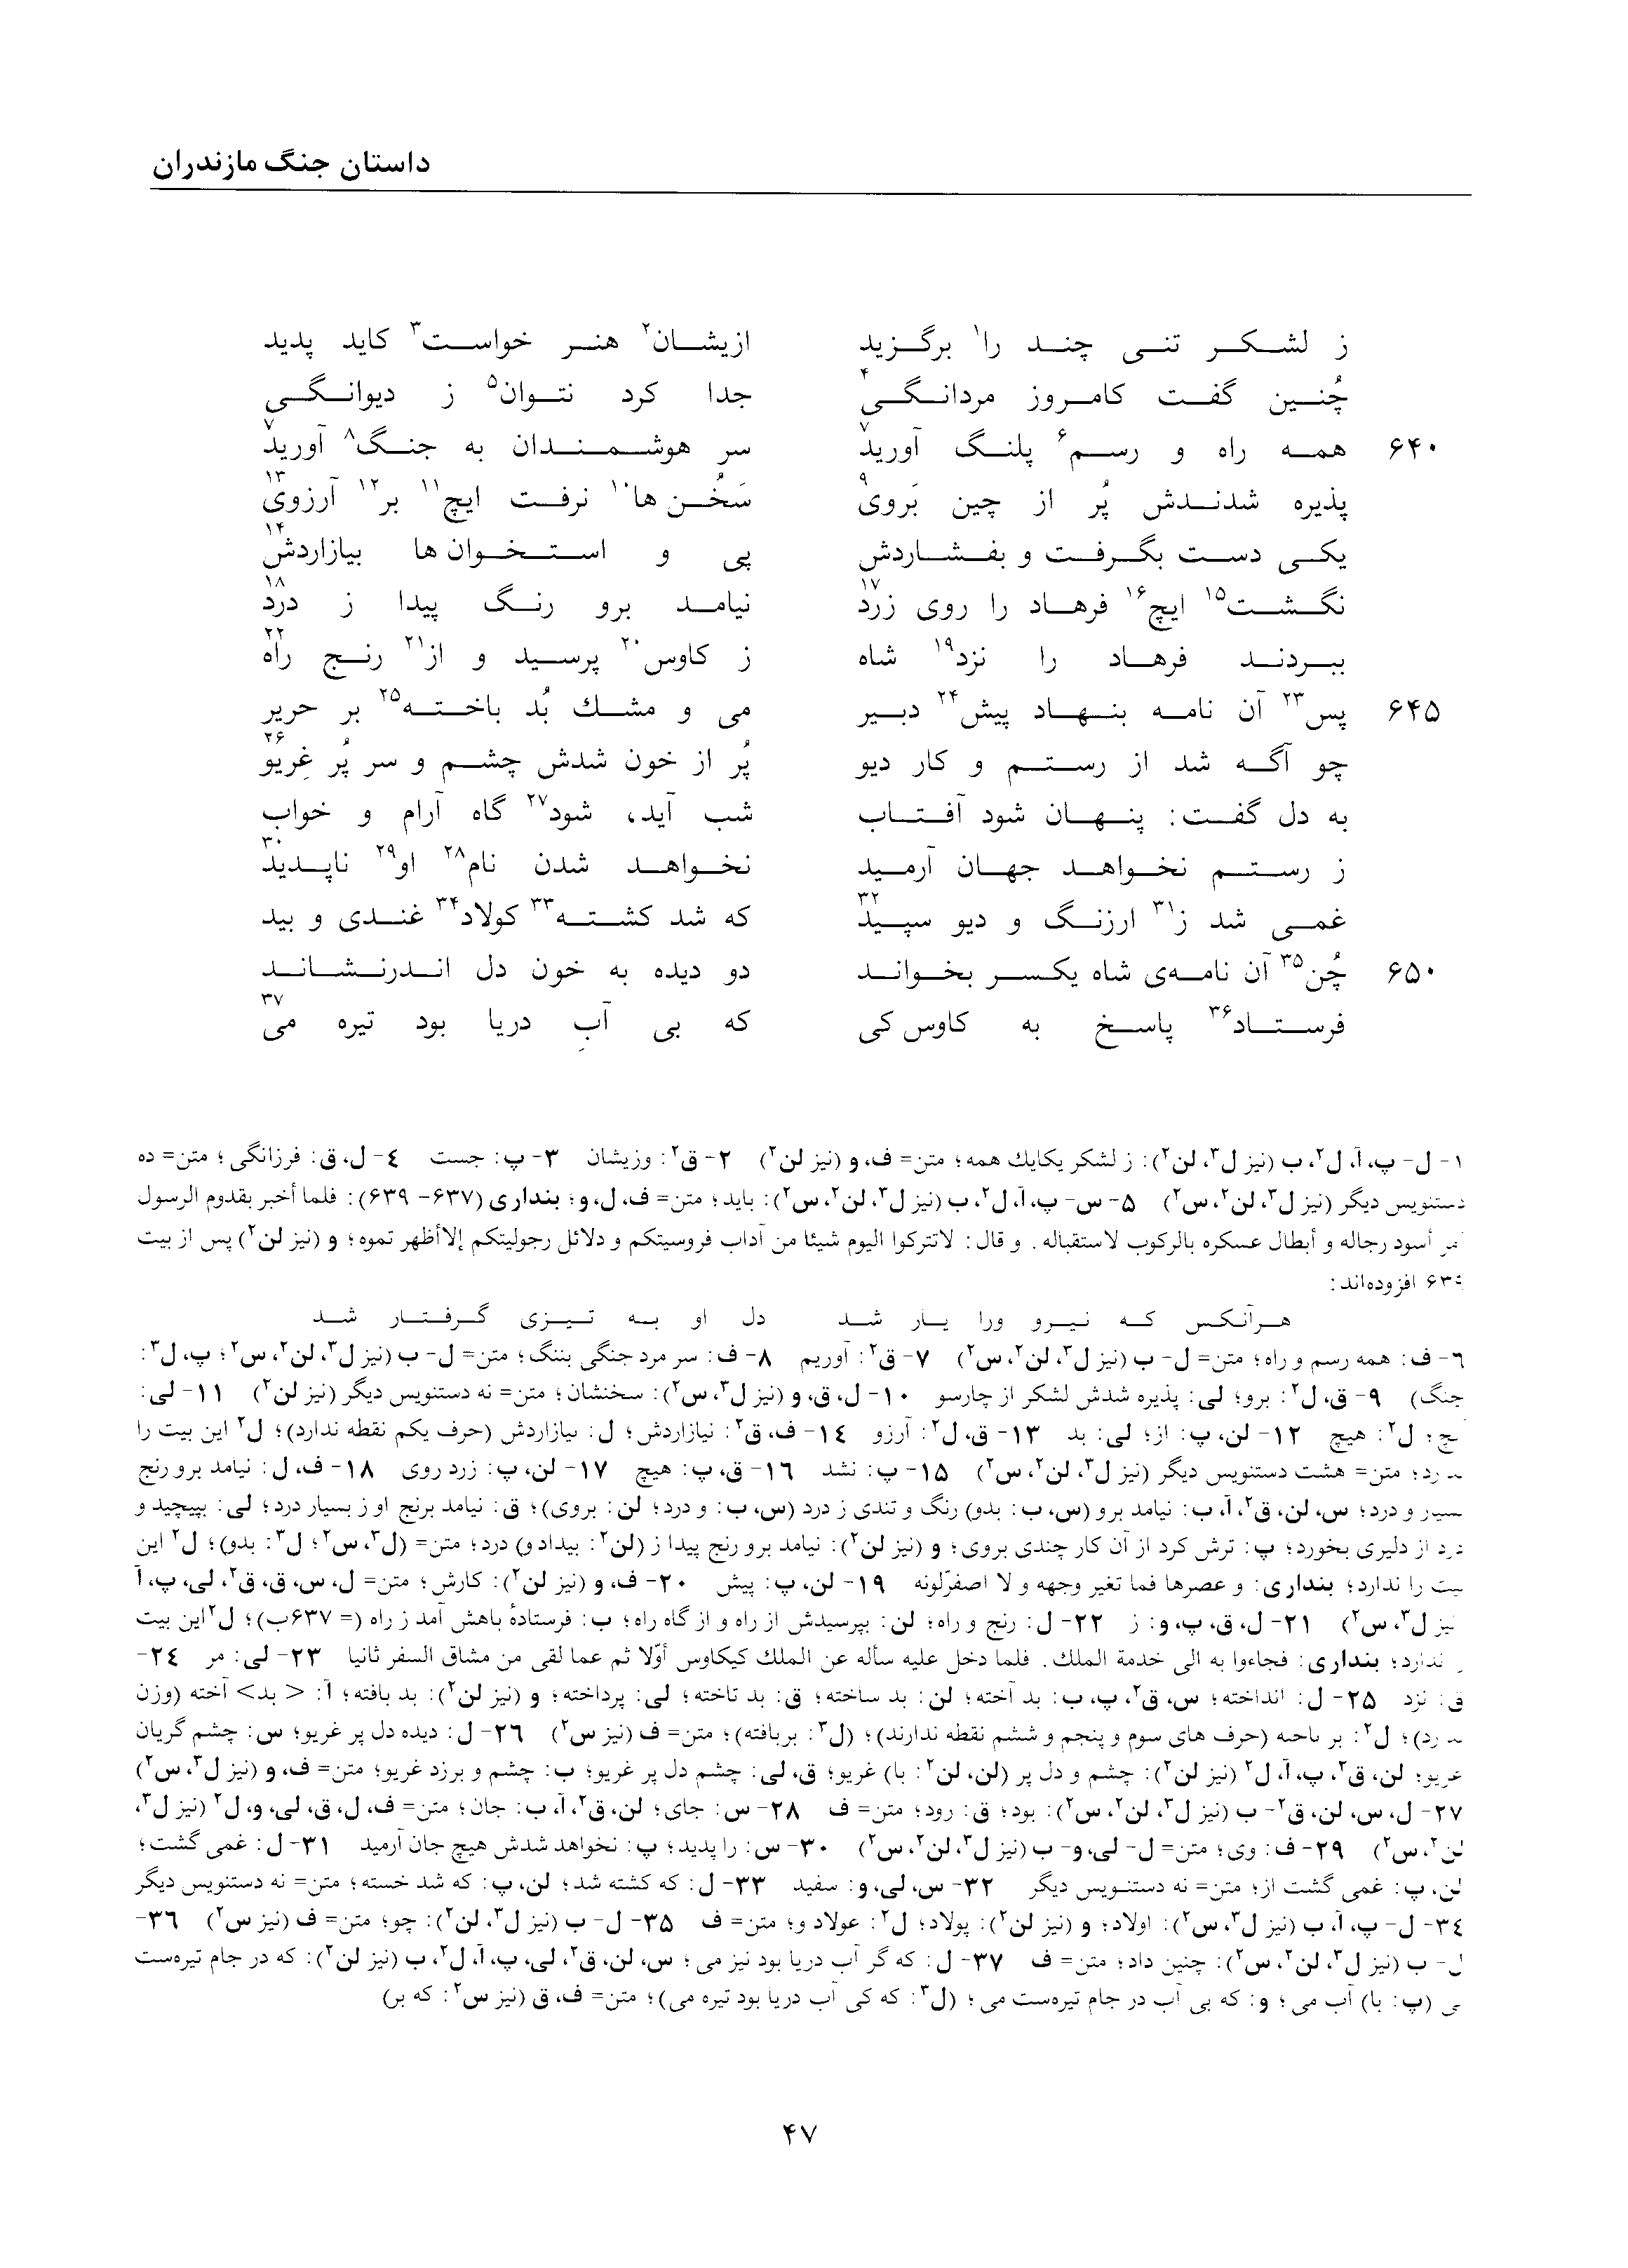 داستان جنگ مازندران
ز لشکر تنی چند را۱ برگزید ازیشان۲ هنر خواست۳ کاید پدید
چُنین گفت کامروز مردانگی۴ جدا کرد نتوان۵ ز دیوانگی
۶۴۰ همه راه و رسم۶ پلنگ آورید۷ سر هوشمندان به جنگ۸ آورید۷
پذیره شدندش پُر از چین بَروی۹ سَخُن ها۱۰ نرفت ایچ۱۱ بر۱۲ آرزوی۱۳
یکی دست بگرفت و بفشاردش پی و استخوان ها بیازاردش۱۴
نگشت۱۵ ایچ۱۶ فرهاد را روی زرد۱۷ نیامد برو رنگ پیدا ز درد۱۸
ببردند فرهاد را نزد۱۹ شاه ز کاوس۲۰ پرسید و از۲۱ رنج راه۲۲
۶۴۵ پس۲۳ آن نامه بنهاد پیش۲۴ دبیر می و مشك بُد باخته۲۵ بر حریر
چو آگه شد از رستم و کار دیو پُر از خون شدش چشم و سر پُر غِریو۲۶
به دل گفت: پنهان شود آفتاب شب آید، شود۲۷ گاه آرام و خواب
ز رستم نخواهد جهان آرمید نخواهد شدن نام۲۸ او۲۹ ناپدید۳۰
غمی شد ز۳۱ ارزنگ و دیو سپید۳۲ که شد کشته۳۳ کولاد۳۴ غندی و بید
۶۵۰ چُن۳۵ آن نامه‌ی شاه یکسر بخواند دو دیده به خون دل اندرنشاند
فرستاد۳۶ پاسخ به کاوس کی که بی آبِ دریا بود تیره می۳۷
۱- ل- پ، آ، ل۲، ب (نیز ل۳، لن۲): ز لشکر یکایك همه؛ متن= ف، و (نیز لن۲) ۲- ق۲: وزیشان ۳- پ: جست ۴- ل، ق: فرزانگی؛ متن= ده
دستنویس دیگر (نیز ل۳، لن۲، س۲) ۵- س- پ، آ، ل۲، ب (نیز ل۳، لن۲، س۲): باید؛ متن= ف، ل، و؛ بنداری (۶۳۷- ۶۳۹): فلما أخبر بقدوم الرسول
أسود رجاله و أبطال عسکره بالرکوب لاستقباله. و قال: لاتترکوا الیوم شیئا من آداب فروسیتکم و دلائل رجولیتکم إلاأظهر تموه؛ و (نیز لن۲) پس از بیت
افزوده‌اند:
هرآنکس که نیرو ورا یار شد دل او به تیزی گرفتار شد
۶- ف: همه رسم و راه؛ متن= ل- ب (نیز ل۳، لن۲، س۲) ۷- ق۲: آوریم ۸- ف: سر مرد جنگی بننگ؛ متن= ل- ب (نیز ل۳، لن۲، س۲؛ پ، ل۳:
جنگ) ۹- ق، ل۲: برو؛ لی: پذیره شدش لشکر از چارسو ۱۰- ل، ق، و (نیز ل۳، س۲): سخنشان؛ متن= نه دستنویس دیگر (نیز لن۲) ۱۱- لی:
ل۲: هیچ ۱۲- لن، پ: از؛ لی: بد ۱۳- ق، ل۲: آرزو ۱۴- ف، ق۲: نیازاردش؛ ل: ںیازاردش (حرف یکم نقطه ندارد)؛ ل۲ این بیت را
متن= هشت دستنویس دیگر (نیز ل۳، لن۲، س۲) ۱۵- پ: نشد ۱۶- ق، پ: هیچ ۱۷- لن، پ: زرد روی ۱۸- ف، ل: نیامد برو رنج
و درد؛ س، لن، ق۲، آ، ب: نیامد برو (س، ب: بدو) رنگ و تندی ز درد (س، ب: و درد؛ لن: بروی)؛ ق: نیامد برنج او ز بسیار درد؛ لی: بپیچید و
از دلیری بخورد؛ پ: ترش کرد از آن کار چندی بروی؛ و (نیز لن۲): نیامد برو رنج پیدا ز (لن۲: بیداد و) درد؛ متن= (ل۳، س۲؛ ل۳: بدو)؛ ل۲ این
را ندارد؛ بنداری: و عصرها فما تغیر وجهه و لا اصفرّ لونه ۱۹- لن، پ: پیش ۲۰- ف، و (نیز لن۲): کارش؛ متن= ل، س، ق، ق۲، لی، پ، آ
ل۳، س۲) ۲۱- ل، ق، پ، و: ز ۲۲- ل: رنج و راه؛ لن: بپرسیدش از راه و از گاه راه؛ ب: فرستادهٔ باهش آمد ز راه (= ۶۳۷ب)؛ ل۲ این بیت
ندارد؛ بنداری: فجاءوا به الی خدمة الملك. فلما دخل علیه سأله عن الملك کیکاوس أوّلا ثم عما لقی من مشاق السفر ثانیا ۲۳- لی: مر ۲۴-
ق: نزد ۲۵- ل: انداخته؛ س، ق۲، پ، ب: بد آخته؛ لن: بد ساخته؛ ق: بد تاخته؛ لی: پرداخته؛ و (نیز لن۲): بد بافته؛ آ: < بد> آخته (وزن
ل۲: بر ںاحںه (حرف های سوم و پنجم و ششم نقطه ندارند)؛ (ل۳: بربافته)؛ متن= ف (نیز س۲) ۲۶- ل: دیده دل پر غریو؛ س: چشم گریان
غریو؛ لن، ق۲، پ، آ، ل۲ (نیز لن۲): چشم و دل پر (لن، لن۲: با) غریو؛ ق، لی: چشم دل پر غریو؛ ب: چشم و برزد غریو؛ متن= ف، و (نیز ل۳، س۲)
۲۷- ل، س، لن، ق۲- ب (نیز ل۳، لن۲، س۲): بود؛ ق: رود؛ متن= ف ۲۸- س: جای؛ لن، ق۲، آ، ب: جان؛ متن= ف، ل، ق، لی، و، ل۲ (نیز ل۳،
لن۲، س۲) ۲۹- ف: وی؛ متن= ل- لی، و- ب (نیز ل۳، لن۲، س۲) ۳۰- س: را پدید؛ پ: نخواهد شدش هیچ جان آرمید ۳۱- ل: غمی گشت؛
لن، پ: غمی گشت از؛ متن= نه دستنویس دیگر ۳۲- س، لی، و: سفید ۳۳- ل: که کشته شد؛ لن، پ: که شد خسته؛ متن= نه دستنویس دیگر
۳۴- ل- پ، آ، ب (نیز ل۳، س۲): اولاد؛ و (نیز لن۲): پولاد؛ ل۲: عولاد و؛ متن= ف ۳۵- ل- ب (نیز ل۳، لن۲): چو؛ متن= ف (نیز س۲) ۳۶-
ل- ب (نیز ل۳، لن۲، س۲): چنین داد؛ متن= ف ۳۷- ل: که گر آب دریا بود نیز می؛ س، لن، ق۲، لی، پ، آ، ل۲، ب (نیز لن۲): که در جام تیره‌ست
(پ: با) آب می؛ و: که بی آب در جام تیره‌ست می؛ (ل۳: که کی آب دریا بود تیره می)؛ متن= ف، ق (نیز س۲: که بر)
۴۷